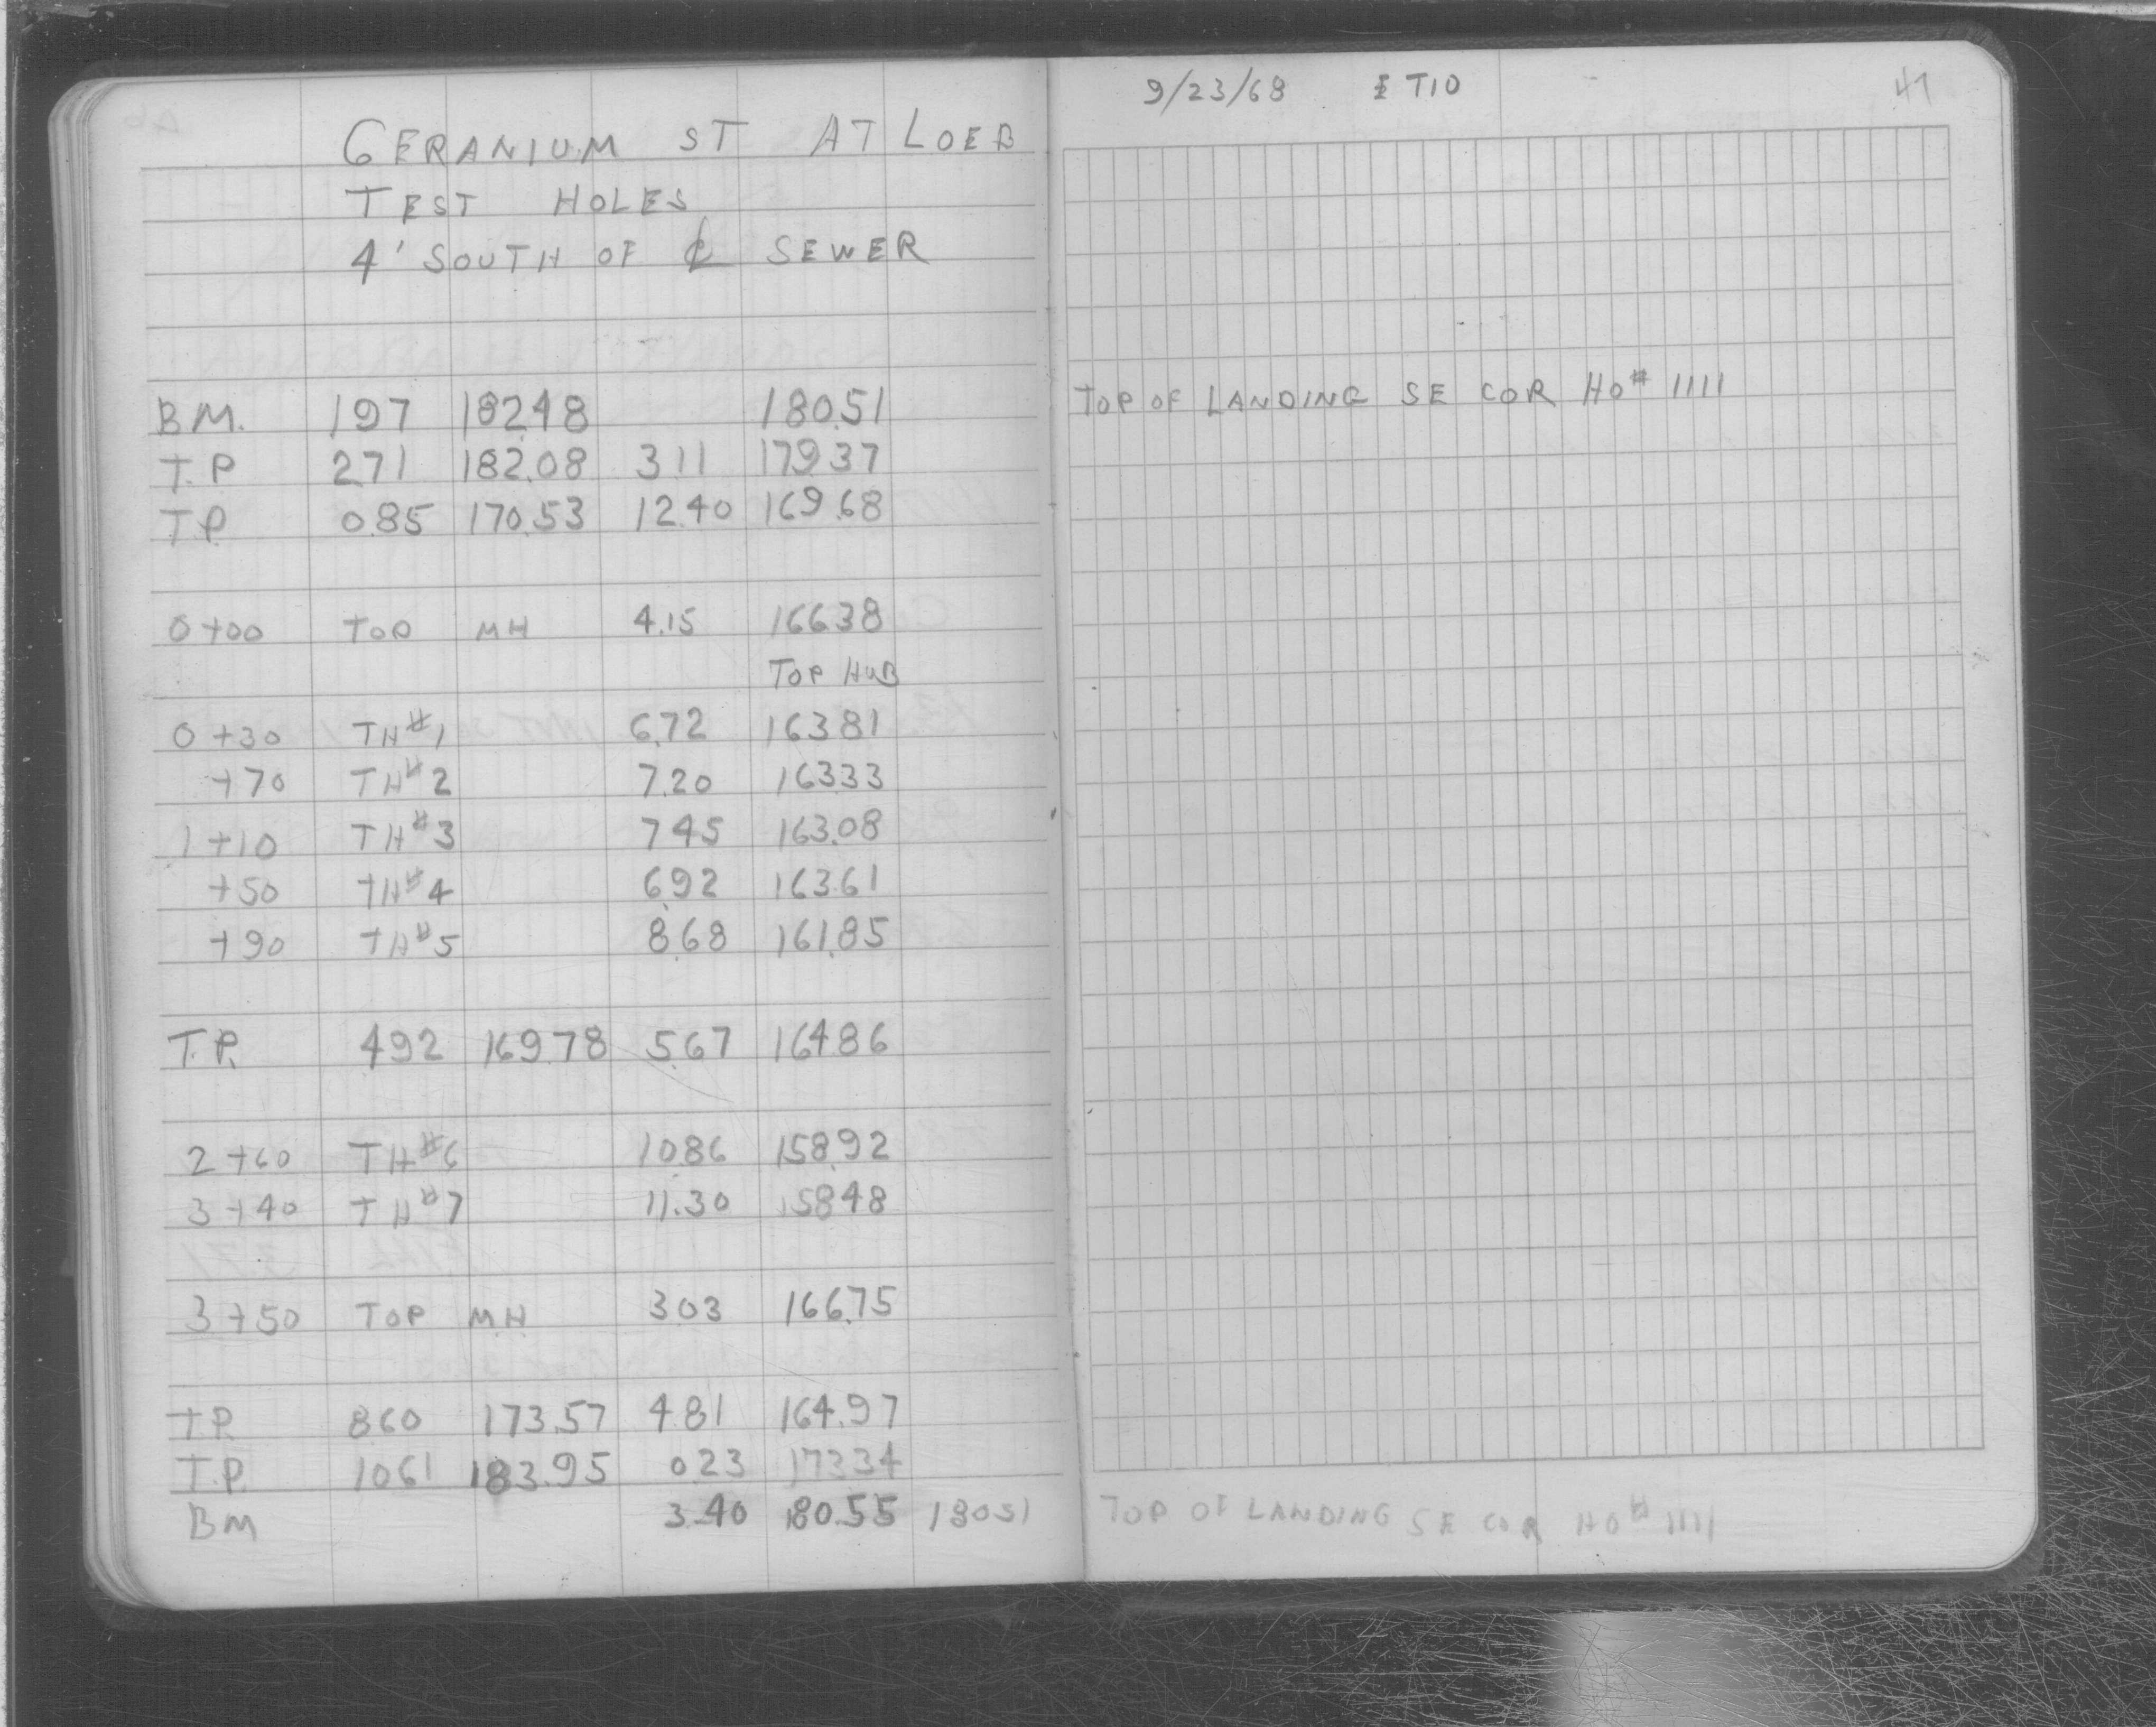 GERANIUM ST AT LOEB
TEST HOLES
4' SOUTH OF ℄ SEWER
B.M. 197 182.48 180.51
T.P 271 182.08 311 179.37
T.P. 0.85 170.53 12.40 169.68
0+00 TOP MH 4.15 166.38
TOP HUB
0+30 TH#1 6.72 163.81
+70 TH#2 7.20 163.33
1+10 TH#3 7.45 163.08
+50 TH#4 6.92 163.61
+90 TH#5 8.68 161.85
T.P. 4.92 169.78 5.67 164.86
2+60 TH#6 10.86 158.92
3+40 TH#7 11.30 158.48
3+50 TOP MH 3.03 166.75
T.P. 8.60 173.57 4.81 164.97
T.P. 10.61 183.95 0.23 173.34
BM 3.40 180.55 180.51
9/23/68 T10 47
TOP OF LANDING SE COR HO# 1111
TOP OF LANDING SE COR HO# 1111